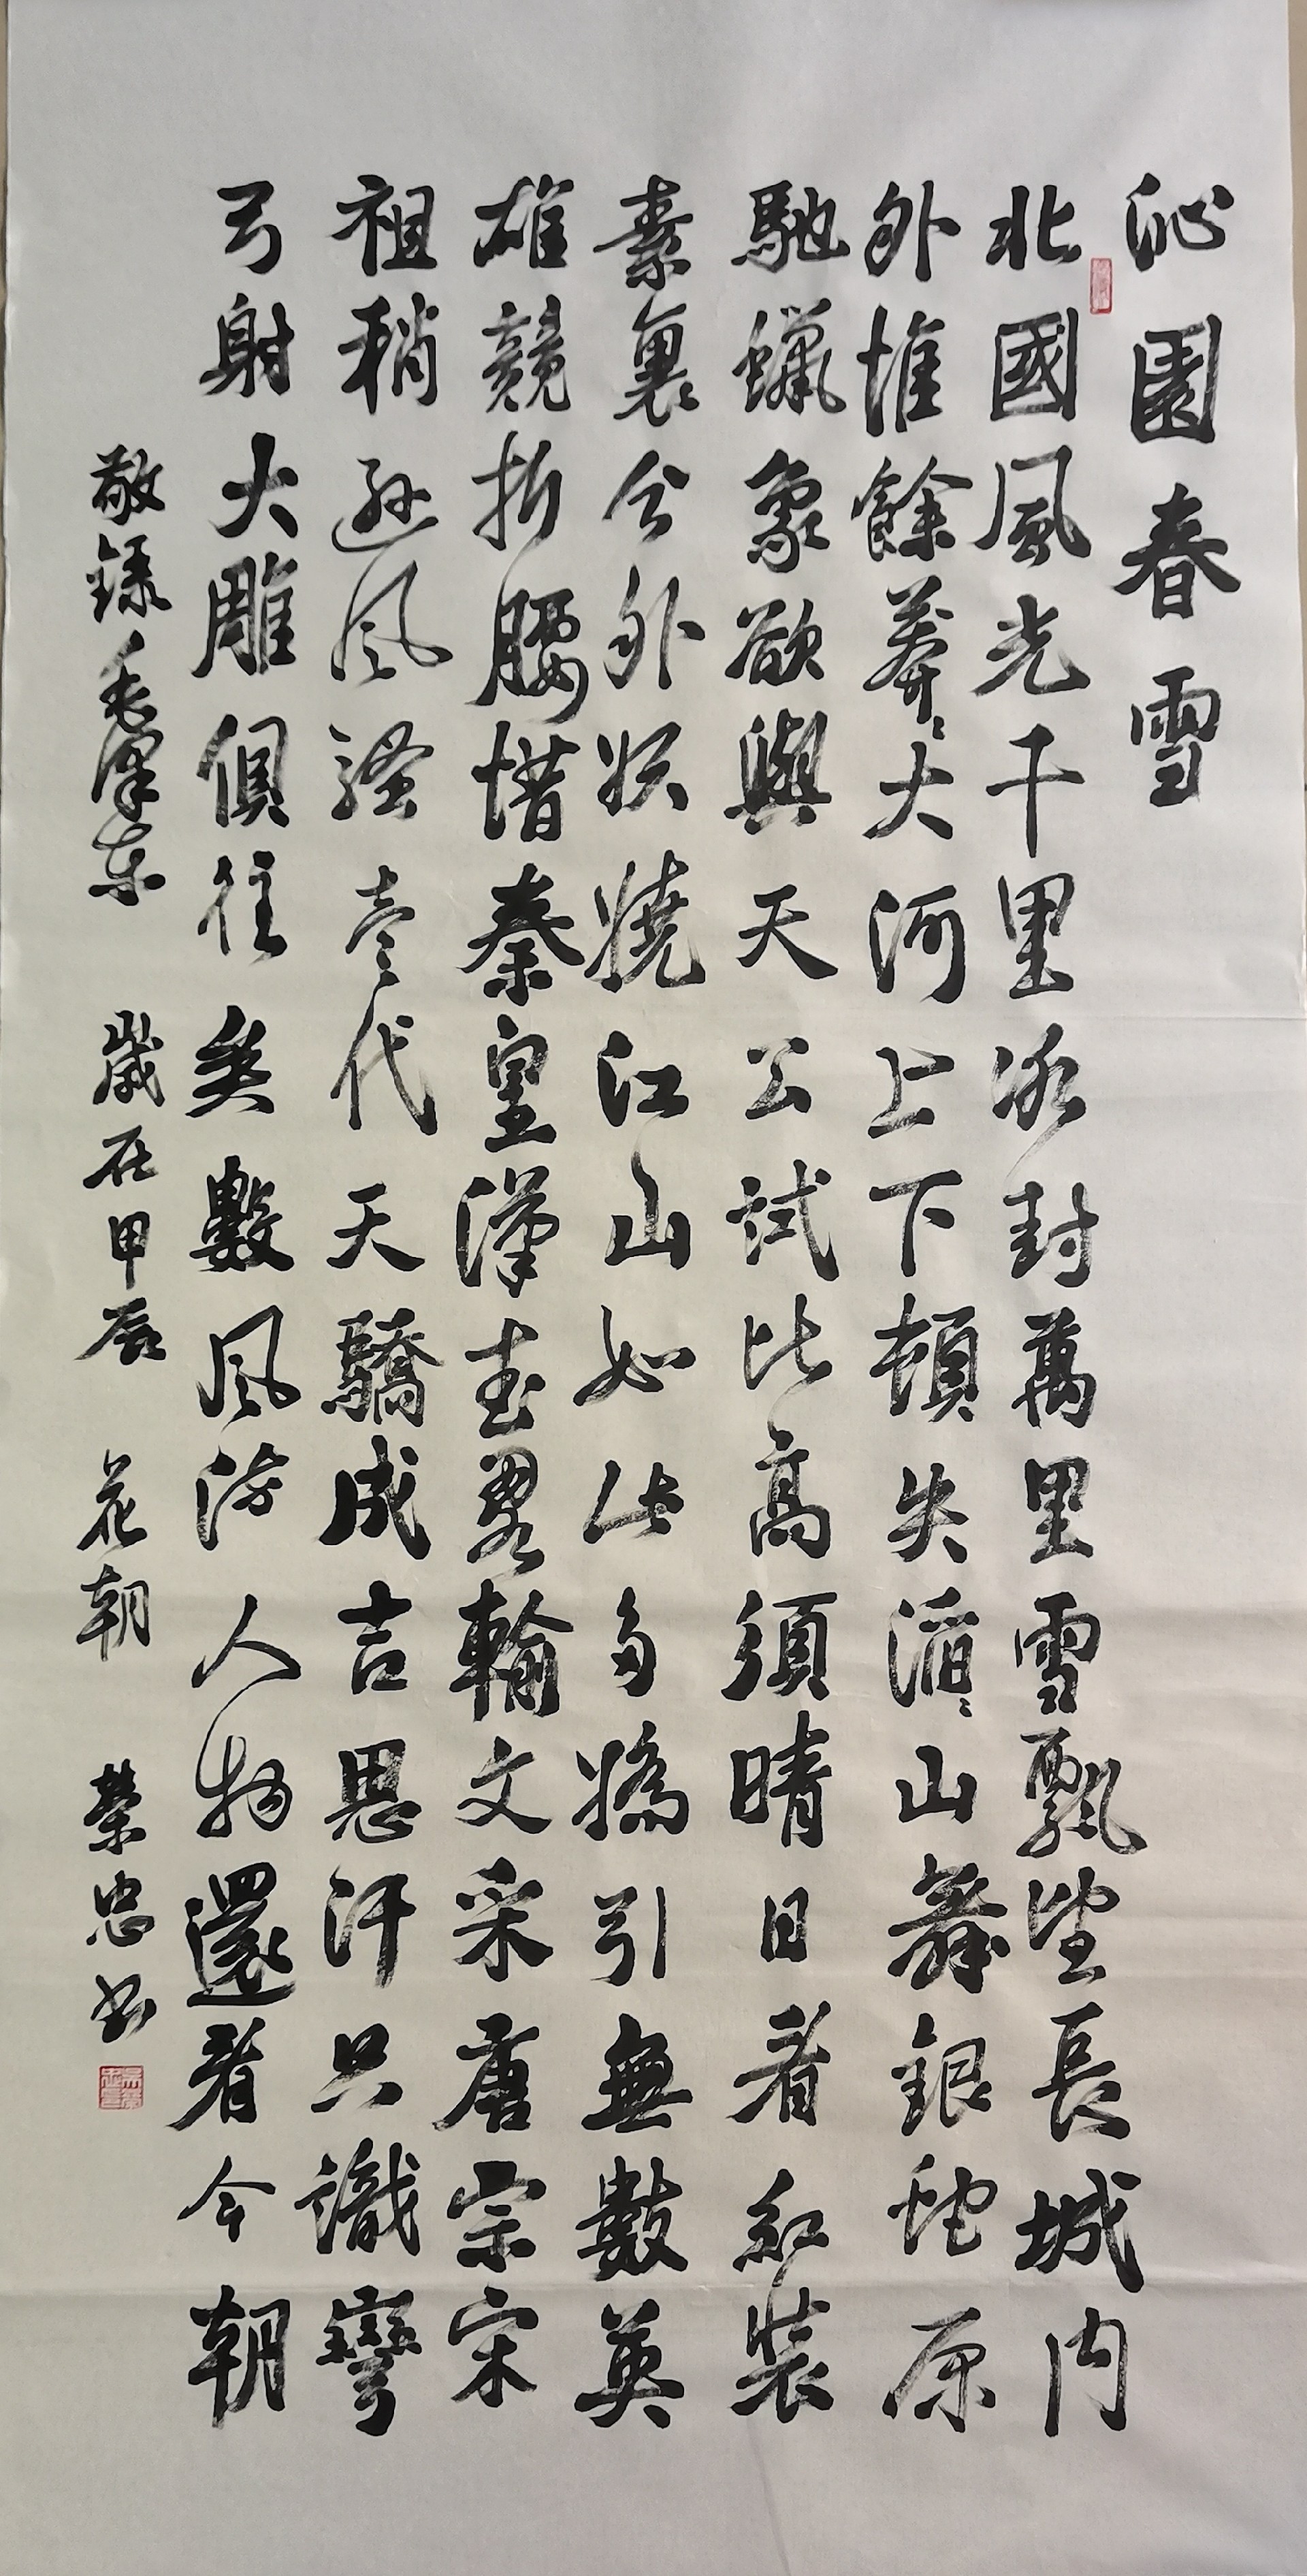 沁園春雪
北國風光千里冰封萬里雪飄望長城內
外惟餘莽々大河上下頓失滔々山舞銀蛇原
馳蠟象欲與天公試比高須晴日看紅裝
素裹分外妖嬈江山如此多嬌引無數英
雄競折腰惜秦皇漢武畧輸文采唐宗宋
祖稍遜風騷壹代天驕成吉思汗只識彎
弓射大雕俱往矣數風流人物還看今朝
敬錄毛澤東 歲在甲辰 花朝 榮忠書